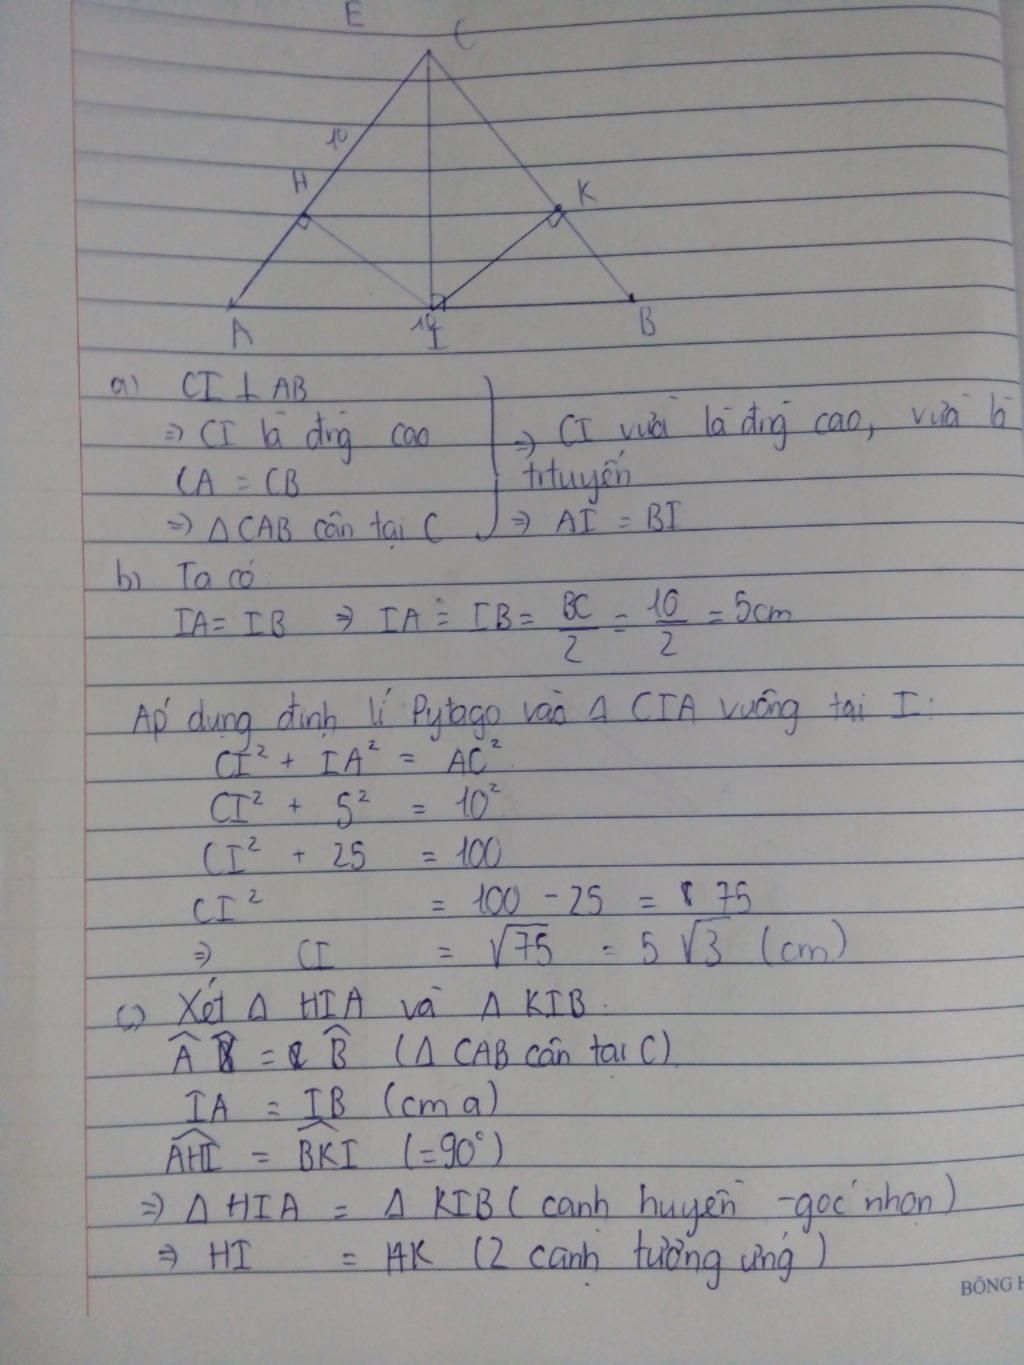 E
C
10
H
K
A
10
I
B
a) CI ⊥ AB
⇒ CI là đng cao
CA = CB
⇒ Δ CAB cân tại C
⇒ CI vừa là đng cao, vừa là
trtuyến
⇒ AI = BI
b) Ta có
IA = IB ⇒ IA = IB = BC/2 = 10/2 = 5cm
Áp dụng định lí Pytago vào Δ CIA vuông tại I:
CI² + IA² = AC²
CI² + 5² = 10²
CI² + 25 = 100
CI² = 100 - 25 = 75
⇒ CI = √75 = 5√3 (cm)
c) Xét Δ HIA và Δ KIB:
Â = B̂ (Δ CAB cân tại C)
IA = IB (cm a)
AHI = BKI (=90°)
⇒ Δ HIA = Δ KIB (cạnh huyền - góc nhọn)
⇒ HI = IK (2 cạnh tương ứng)
BÔNG H